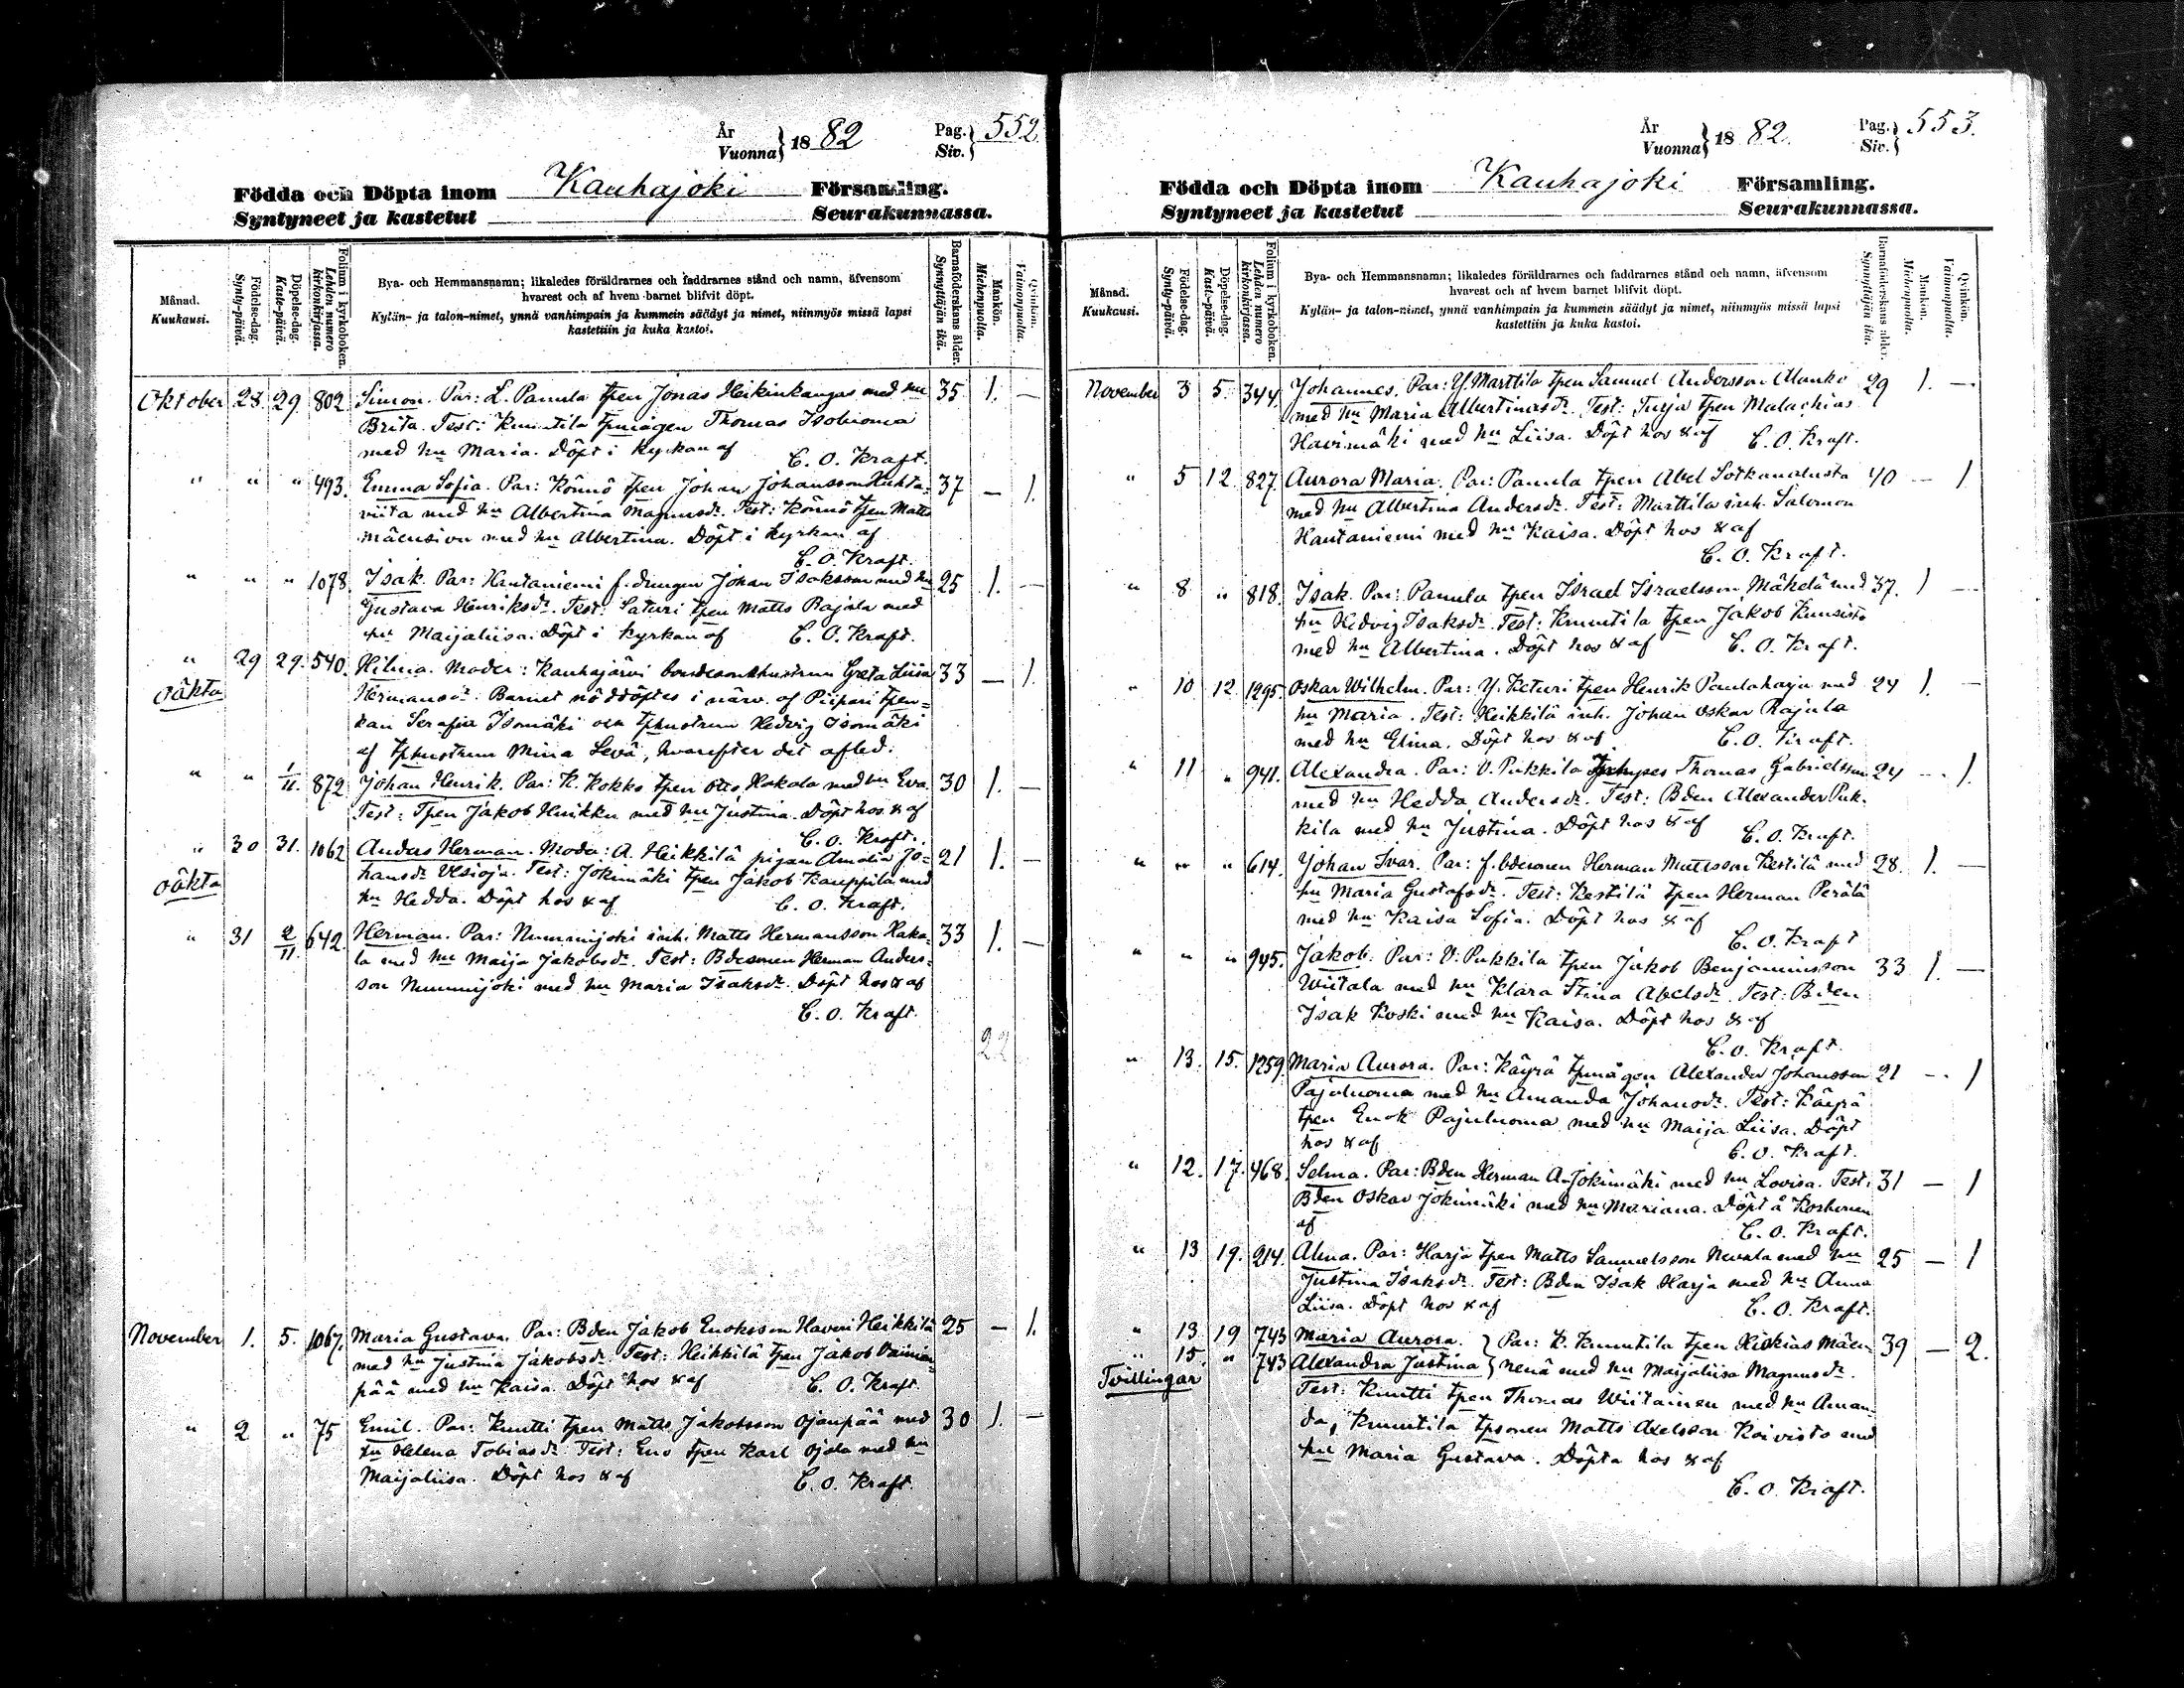 År
Vuonna } 18 82
Pag.
Siv. } 552.
Födda och Döpta inom Kauhajoki Församling.
Syntyneet ja kastetut Seurakunnassa.
Månad.
Kuukausi.
Födelse-dag.
Synty-päivä.
Döpelse-dag.
Kaste-päivä.
Folium i kyrkoboken.
Lehden numero
kirkonkirjassa.
Bya- och Hemmansnamn; likaledes föräldrarnes och faddrarnes stånd och namn, äfvensom
hvarest och af hvem barnet blifvit döpt.
Kylän- ja talon-nimet, ynnä vanhimpain ja kummein säädyt ja nimet, niinmyös missä lapsi
kastettiin ja kuka kastoi.
Barnaföderskans ålder.
Synnyttäjän ikä.
Mankön.
Miehenpuolta.
Qvinkön.
Vaimonpuolta.
Oktober 28. 29. 802. Simon. Par: L. Panula tpen Jonas Heikinkangas med hu 35 1. —
Brita. Test: Knuutila tpmågen Thomas Isoluoma
med hu Maria. Döpt i kyrkan af C. O. Kraft.
" " " 493. Emma Sofia. Par: Könnö tpen Johan Johansson Huhta- 37 — 1.
viita med hu Albertina Magnusdr. Test: Könnö tpen Matts
Mäensivu med hu Albertina. Döpt i kyrkan af
C. O. Kraft.
" " " 1078. Isak. Par: Hautaniemi f. drengen Johan Isaksson med hu 25 1. —
Gustava Henriksdr. Test: Saturi tpen Matts Rajala med
hu Maijaliisa. Döpt i kyrkan af C. O. Kraft.
" 29 29. 540. Hilma. Moder: Kauhajärvi bondesonhustrun Greta Liisa 33 — 1.
oäkta Hermansdr. Barnet nöddöptes i närv. af Piipari tpen-
kan Serafia Isomäki och tphustrun Hedvig Isomäki
af tphustrun Mina Levä, hvarefter det afled.
" " 1/11. 872 Johan Henrik. Par: K. Kokko tpen Otto Hakala med hu Eva. 30 1. —
Test: Tpen Jakob Huikku med hu Justina. Döpt hos & af
C. O. Kraft.
" 30 31. 1062 Anders Herman. Moder: A. Heikkilä pigan Amalia Jo- 21 1. —
oäkta hansdr Ylsioja. Test: Jokimäki tpen Jakob Kauppila med
hu Hedda. Döpt hos & af C. O. Kraft.
" 31 2/11. 642. Herman. Par: Nummijoki inh. Matts Hermansson Haka- 33 1. —
la med hu Maija Jakobsdr. Test: Bdesonen Herman Anders-
son Nummijoki med hu Maria Isaksdr. Döpt hos & af
C. O. Kraft.
22
November 1. 5. 1067. Maria Gustava. Par: Bden Jakob Enoksson Haveri Heikkilä 25 — 1.
med hu Justina Jakobsdr. Test: Heikkilä tpen Jakob Vainion-
pää med hu Kaisa. Döpt hos & af C. O. Kraft.
" 2 " 75 Emil. Par: Knutti tpen Matts Jakobsson Ojanpää med 30 1. —
hu Helena Tobiasdr. Test: Eno tpen Karl Ojala med hu
Maijaliisa. Döpt hos & af C. O. Kraft.
År
Vuonna } 18 82.
Pag.
Siv. } 553.
Födda och Döpta inom Kauhajoki Församling.
Syntyneet ja kastetut Seurakunnassa.
Månad.
Kuukausi.
Födelse-dag.
Synty-päivä.
Döpelse-dag.
Kaste-päivä.
Folium i kyrkoboken.
Lehden numero
kirkonkirjassa.
Bya- och Hemmansnamn; likaledes föräldrarnes och faddrarnes stånd och namn, äfvensom
hvarest och af hvem barnet blifvit döpt.
Kylän- ja talon-nimet, ynnä vanhimpain ja kummein säädyt ja nimet, niinmyös missä lapsi
kastettiin ja kuka kastoi.
Barnaföderskans ålder.
Synnyttäjän ikä.
Mankön.
Miehenpuolta.
Qvinkön.
Vaimonpuolta.
November 3 5. 344. Johannes. Par: Y. Marttila tpen Samuel Andersson Alanko 29 1. —
med hu Maria Albertinasdr. Test: Turja tpen Malachias
Havimäki med hu Liisa. Döpt hos & af C. O. Kraft.
" 5 12. 827. Aurora Maria. Par: Panula tpen Abel Sotkanalusta 40 — 1
med hu Albertina Andersdr. Test: Marttila inh. Salomon
Hautaniemi med hu Kaisa. Döpt hos & af
C. O. Kraft.
" 8 " 818. Isak. Par: Panula tpen Israel Israelsson Mäkelä med 37. 1 —
hu Hedvig Isaksdr. Test: Knuutila tpen Jakob Kuusisto
med hu Albertina. Döpt hos & af C. O. Kraft.
" 10 12. 1295. Oskar Wilhelm. Par: Y. Keturi tpen Henrik Paulaharju med 24 1. —
hu Maria. Test: Heikkilä inh. Johan Oskar Rajala
med hu Elina. Döpt hos & af C. O. Kraft.
" 11 " 941. Alexandra. Par: V. Pukkila Thomas Gabrielsson 24 — 1.
med hu Hedda Andersdr. Test: Bden Alexander Puk-
kila med hu Justina. Döpt hos & af C. O. Kraft.
" " " 614. Johan Ivar. Par: f. bdesonen Herman Mattsson Kestilä med 28. 1. —
hu Maria Gustafsdr. Test: Kestilä tpen Herman Perälä
med hu Kaisa Sofia. Döpt hos & af
C. O. Kraft
" " " 945. Jakob. Par: V. Pukkila tpen Jakob Benjaminsson 33 1. —
Wiitala med hu Klara Stina Abelsdr. Test: Bden
Isak Koski med hu Kaisa. Döpt hos & af
C. O. Kraft.
" 13. 15. 1259. Maria Aurora. Par: Käyrä tpmågen Alexander Johansson 21 — 1
Pajuluoma med hu Amanda Johansdr. Test: Käyrä
tpen Enok Pajuluoma med hu Maija Liisa. Döpt
hos & af C. O. Kraft.
" 12. 17. 468. Selma. Par: Bden Herman A-Jokimäki med hu Lovisa. Test: 31 — 1
Bden Oskar Jokimäki med hu Mariana. Döpt å Korhonen
af C. O. Kraft.
" 13 19. 214. Alma. Par: Harja tpen Matts Samuelsson Nevala med hu 25 — 1
Justina Isaksdr. Test: Bden Isak Harja med hu Anna
Liisa. Döpt hos & af C. O. Kraft.
" 13 19 743 Maria Aurora. } Par: K. Knuutila tpen Hiskias Mäen- 39 — 2.
" 15. " 743 Alexandra Justina } nenä med hu Maijaliisa Magnusdr.
Tvillingar Test: Knutti tpen Thomas Wiitainen med hu Aman-
da, Knuutila tpsonen Matts Axelsson Koivisto med
hu Maria Gustava. Döpta hos & af
C. O. Kraft.